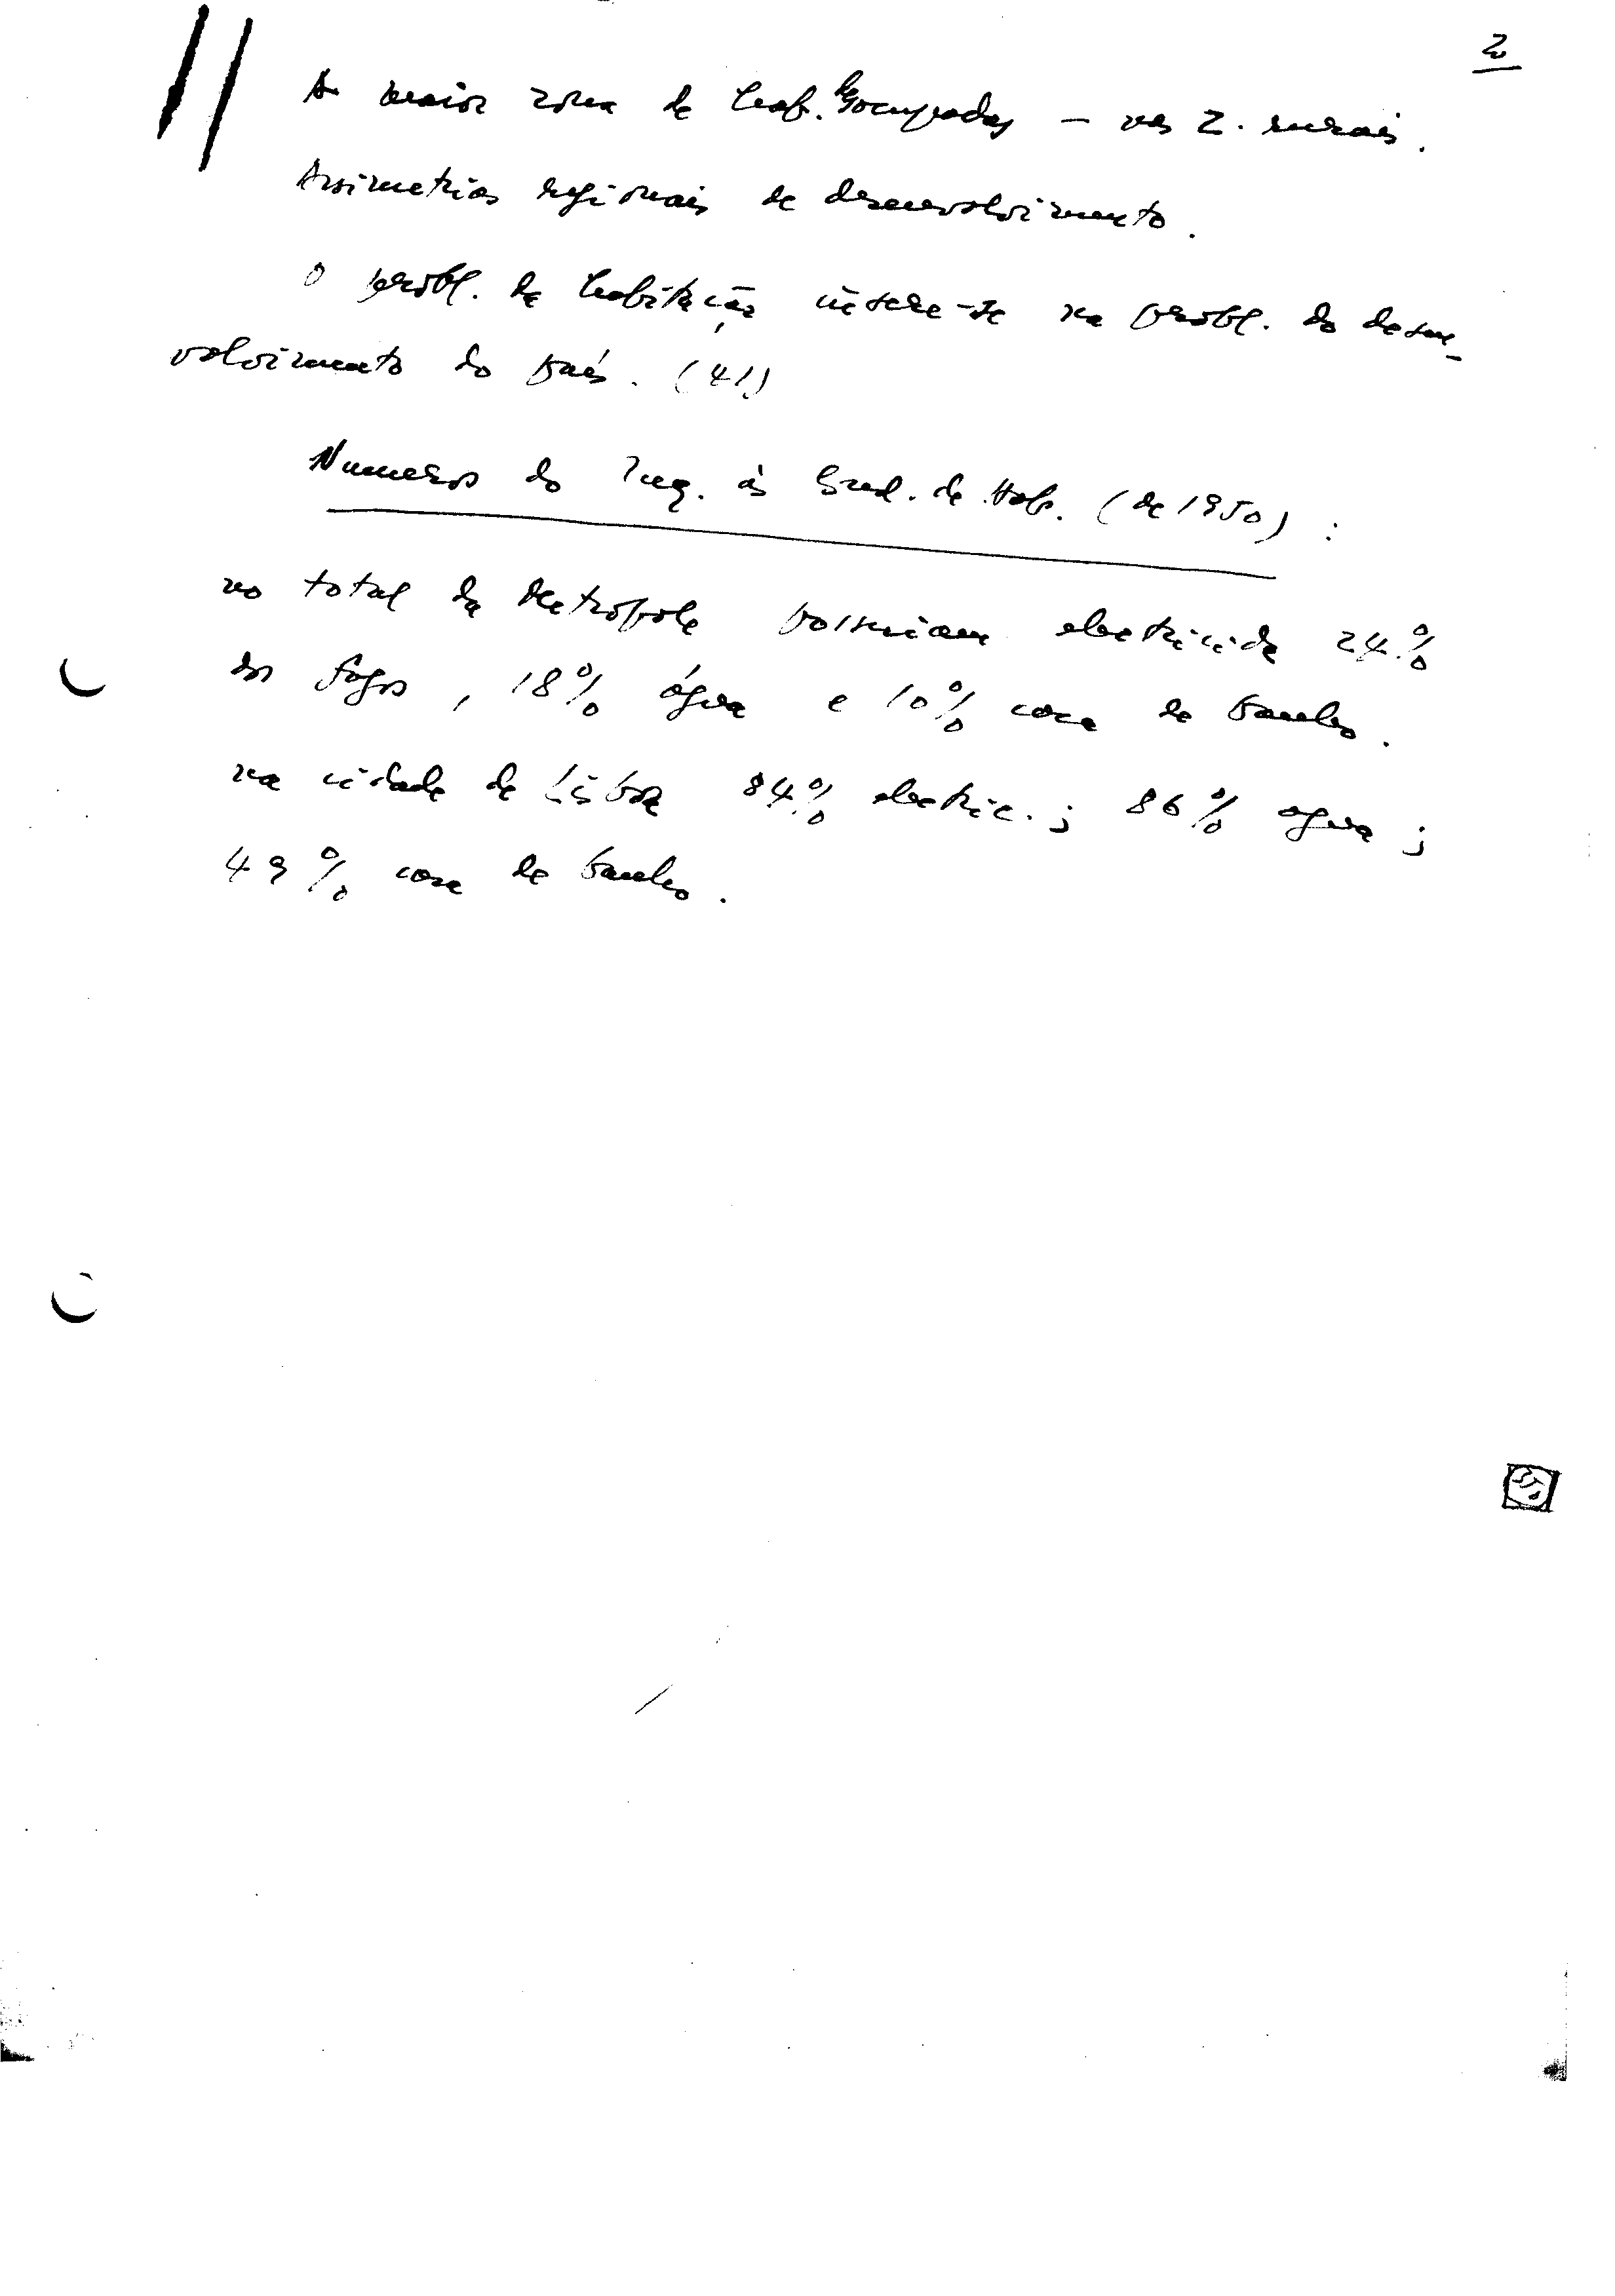 2
A maior zona de hab. desocupadas – nas Z. rurais.
Assimetrias regionais de desenvolvimento.
O probl. da habitação insere-se no probl. do desen-
volvimento do país. (41)
Numeros do Inq. às Cond. de Hab. (de 1950) :
no total da Metrópole possuiam electricidade 24%
dos fogos, 18% água e 10% casa de banho.
na cidade de Lisboa 84% electric. ; 86% agua ;
49% casa de banho.